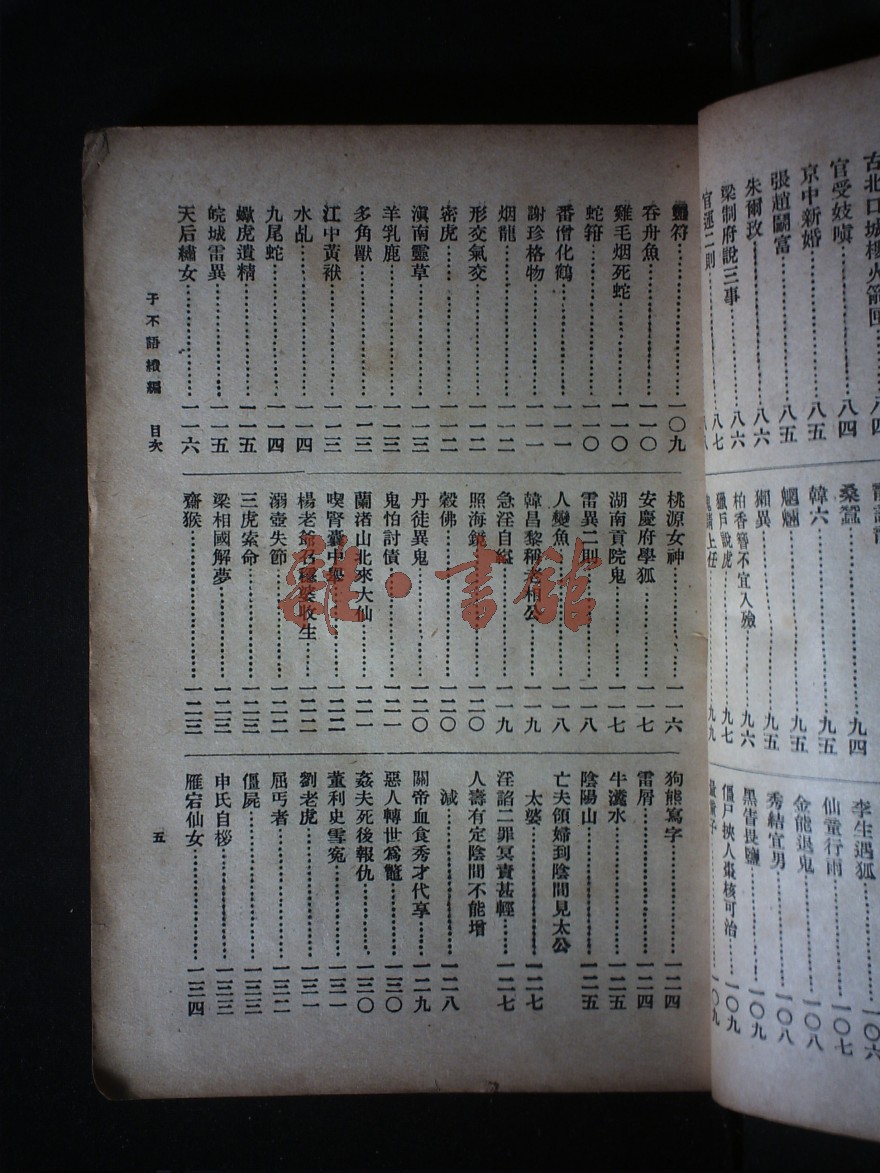 古北口城樓火箭匣……八四
官受妓嗔……八四
京中新婚……八五
張趙鬭富……八五
朱爾玫……八六
梁制府說三事……八六
官運二則……八七
桑蠶……九四
韓六……九五
魍魎……九五
獺異……九五
柏香簪不宜入殮……九六
獵戶說虎……九七
李生遇狐……一〇六
仙童行雨……一〇七
金能退鬼……一〇八
秀結宜男……一〇八
黑眚畏鹽……一〇九
僵尸挾人棗核可治……一〇九
靈符……一〇九
吞舟魚……一一〇
雞毛烟死蛇……一一〇
蛇箝……一一〇
番僧化鶴……一一一
謝珍格物……一一一
烟龍……一一二
形交氣交……一一二
密虎……一一二
滇南靈草……一一三
羊乳鹿……一一三
多角獸……一一三
江中黃袱……一一三
水乩……一一四
九尾蛇……一一四
蠍虎遺精……一一五
皖城雷異……一一五
天后繡女……一一六
桃源女神……一一六
安慶府學狐……一一七
湖南貢院鬼……一一七
雷異二則……一一八
人變魚……一一八
韓昌黎稱老相公……一一九
急淫自縊……一一九
照海鏡……一二〇
穀佛……一二〇
丹徒異鬼……一二〇
鬼怕討債……一二一
蘭渚山北來大仙……一二一
喫腎囊中舉……一二二
楊老爺召穩婆收生……一二二
溺壺失節……一二二
三虎索命……一二三
梁相國解夢……一二三
齋猴……一二三
狗熊寫字……一二四
雷屑……一二四
牛瀵水……一二五
陰陽山……一二五
亡夫領婦到陰間見太公
太婆……一二七
淫諂二罪冥責甚輕……一二七
人壽有定陰間不能增
減……一二八
關帝血食秀才代享……一二九
惡人轉世爲鼈……一三〇
姦夫死後報仇……一三〇
董刺史雪冤……一三一
劉老虎……一三一
屈丐者……一三二
僵屍……一三三
申氏自桚……一三三
雁宕仙女……一三四
子不語續編 目次
五
雜·書館